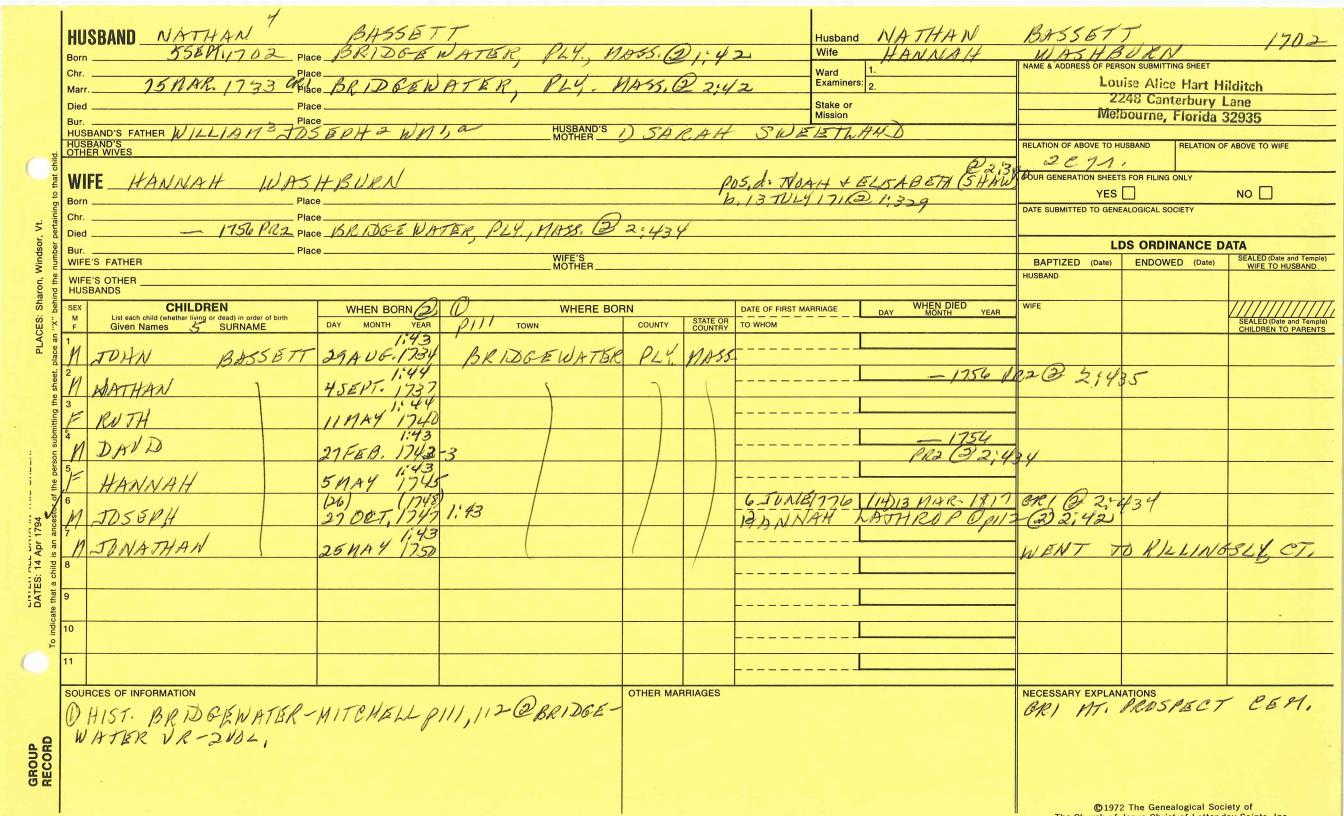 HUSBAND NATHAN 4 BASSETT
Born 5 SEPT. 1702 Place BRIDGEWATER, PLY., MASS. ② 1:42
Chr. Place
Marr. 15 MAR. 1733 CR1 Place BRIDGEWATER, PLY. MASS. ② 2:42
Died Place
Bur. Place
HUSBAND'S FATHER WILLIAM 3 JOSEPH 2 WM 1, a HUSBAND'S MOTHER 1) SARAH SWEETLAND
HUSBAND'S OTHER WIVES
Husband NATHAN BASSETT 1702
Wife HANNAH WASHBURN
Ward Examiners: 1.
2.
Stake or Mission
NAME & ADDRESS OF PERSON SUBMITTING SHEET
Louise Alice Hart Hilditch
2248 Canterbury Lane
Melbourne, Florida 32935
RELATION OF ABOVE TO HUSBAND RELATION OF ABOVE TO WIFE
FOUR GENERATION SHEETS FOR FILING ONLY
YES NO
DATE SUBMITTED TO GENEALOGICAL SOCIETY
WIFE HANNAH WASHBURN pos. d. NOAH + ELISABETH (SHAW)
Born Place b. 13 JULY ② 1:329
Chr. Place
Died — 1756 PR2 Place BRIDGEWATER, PLY., MASS. ② 2:434
Bur. Place
WIFE'S FATHER WIFE'S MOTHER
WIFE'S OTHER HUSBANDS
LDS ORDINANCE DATA
BAPTIZED (Date) ENDOWED (Date) SEALED (Date and Temple) WIFE TO HUSBAND
HUSBAND
WIFE
SEALED (Date and Temple) CHILDREN TO PARENTS
SEX M F CHILDREN WHEN BORN ② ① WHERE BORN DATE OF FIRST MARRIAGE WHEN DIED
List each child (whether living or dead) in order of birth
Given Names 5 SURNAME DAY MONTH YEAR p111 TOWN COUNTY STATE OR COUNTRY TO WHOM DAY MONTH YEAR
1 1:43
M JOHN BASSETT 29 AUG. 1734 BRIDGEWATER PLY. MASS.
2 1:44
M NATHAN 4 SEPT. 1737 — 1756 PR2 ② 2:435
3 1:44
F RUTH 11 MAY 1740
4 1:43 — 1756
M DAVID 27 FEB. 1742-3 PR2 ② 2:434
5 1:43
F HANNAH 5 MAY 1745
6 (26) (1748) 6 JUNE 1776 (14) 13 MAR. 1817 GR1 ② 2:434
M JOSEPH 27 OCT. 1747 1:43 HANNAH LATHROP ① p112 ② 2:42
7 1:43
M JONATHAN 25 MAY 1750 WENT TO KILLINGSLY, CT.
8
9
10
11
SOURCES OF INFORMATION
① HIST. BRIDGEWATER-MITCHELL p111, 112 ② BRIDGE-
WATER VR-2VOL.
OTHER MARRIAGES
NECESSARY EXPLANATIONS
GR1 MT. PROSPECT CEM.
©1972 The Genealogical Society of
PLACES: Sharon, Windsor, Vt.
DATES: 14 Apr 1794
To indicate that a child is an ancestor of the person submitting the sheet, place an "X" behind the number pertaining to that child.
GROUP RECORD